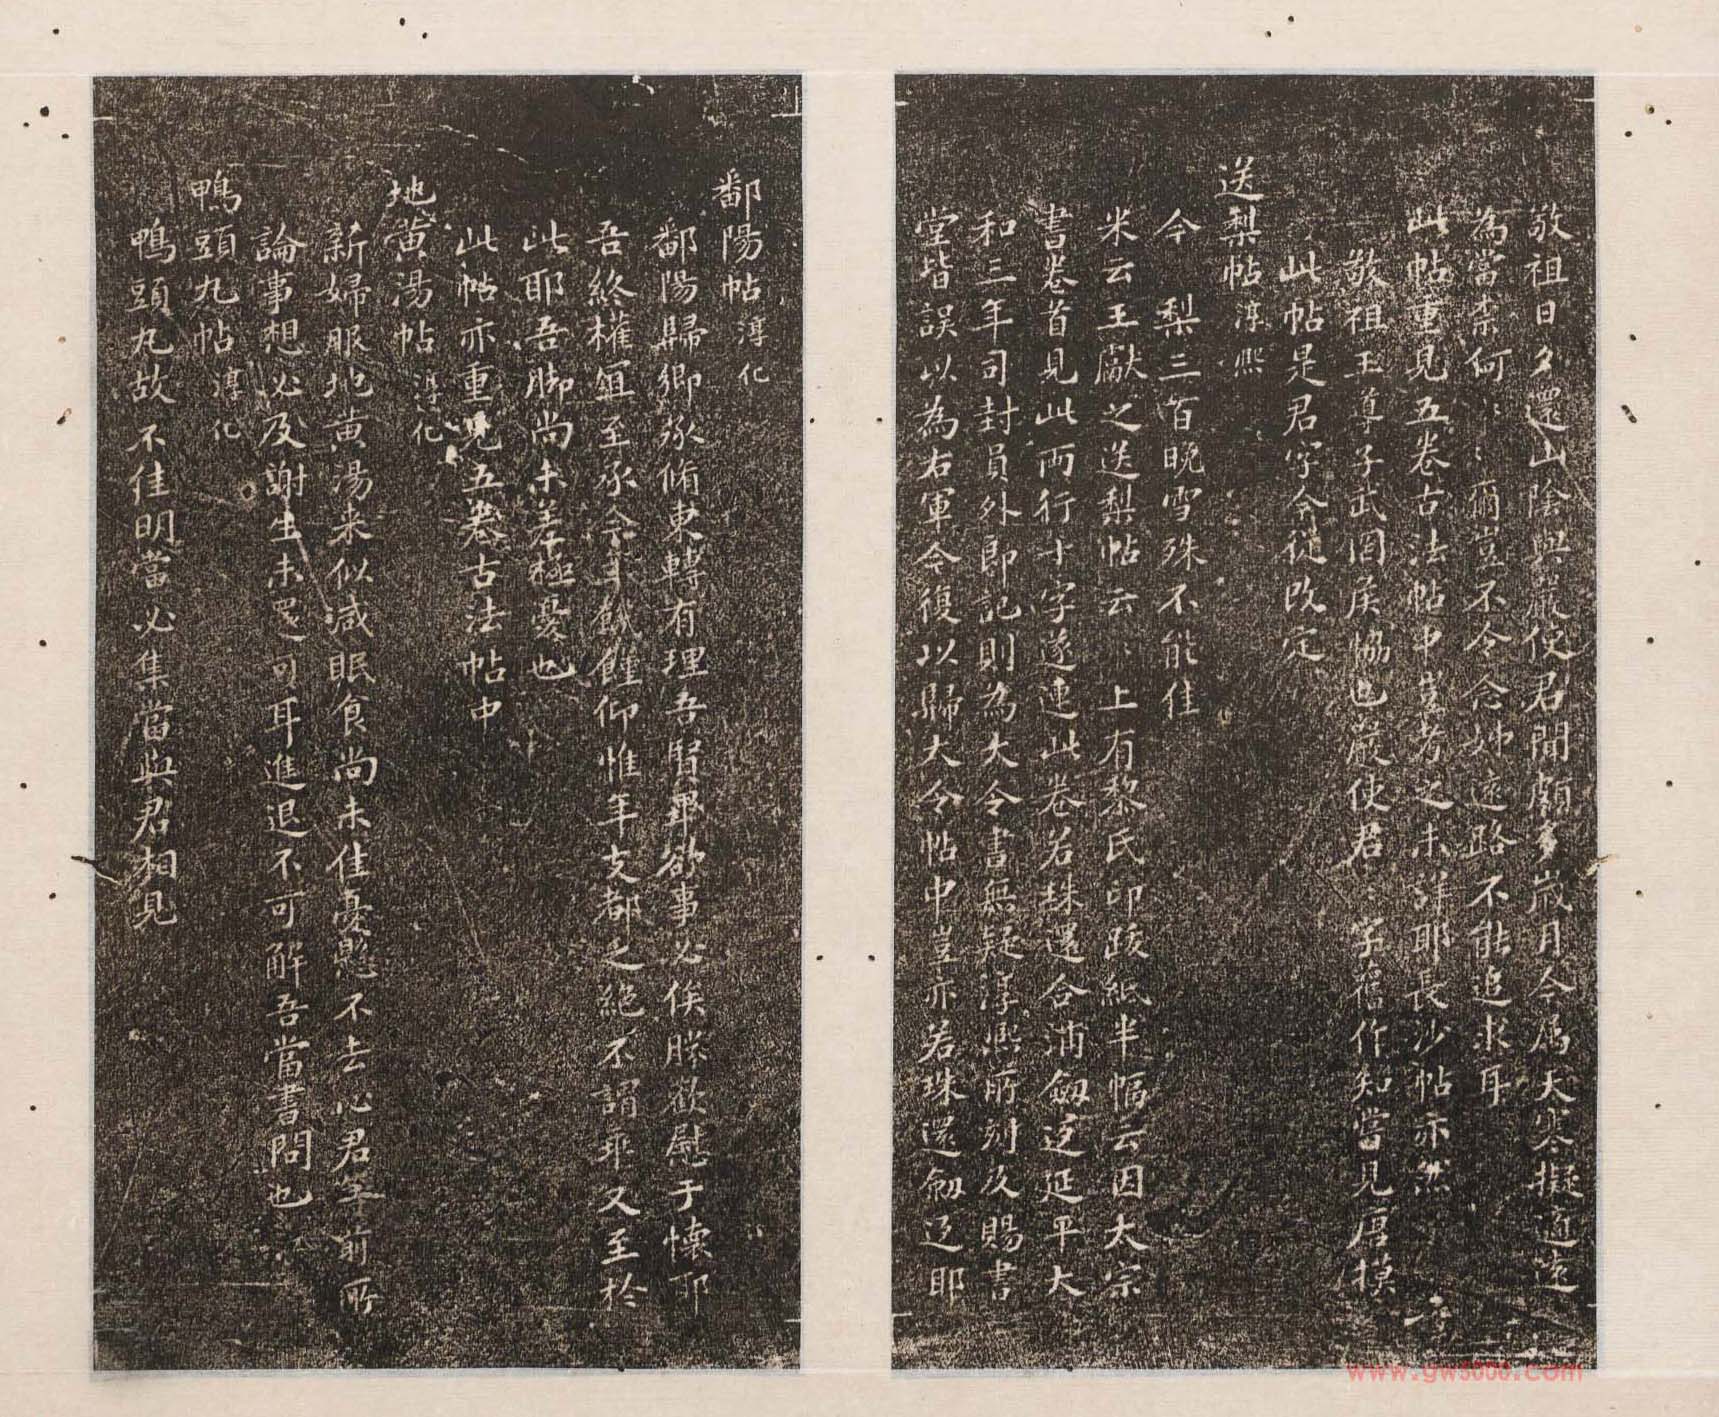 敬祖日夕還山陰與嚴使君聞頗多歲月今屬天寒擬適遠
為當柰何〻爾豈不令念姊遠路不能追求耳
此帖重見五卷古法帖中豈考之未詳耶長沙帖亦然
敬祖王導子武岡侯協也嚴使君〻字舊作知當見唐摸
此帖是君字今從改定
送梨帖淳熙
今 梨三百晚雪殊不能佳
米云王獻之送梨帖云〻上有黎氏印跋紙半幅云因太宗
書卷首見此兩行十字遂連此卷若珠還合浦劒返延平大
和三年司封員外郎記則為大令書無疑淳熙所刻及賜書
堂皆誤以為右軍今復以歸大令帖中豈亦若珠還劒返耶
鄱陽帖淳化
鄱陽歸鄉承脩東轉有理吾賢畢欲事必俟勝歡慰于懷耶
吾終權宜至承今年飢饉仰惟年支都乏絕不謂乖又至於
此耶吾脚尚未差極憂也
此帖亦重見五卷古法帖中
地黃湯帖淳化
新婦服地黃湯來似減眠食尚未佳憂懸不去心君等前所
論事想必及謝生未還可耳進退不可解吾當書問也
鴨頭丸帖淳化
鴨頭丸故不佳明當必集當與君相見
www.gw5000.com